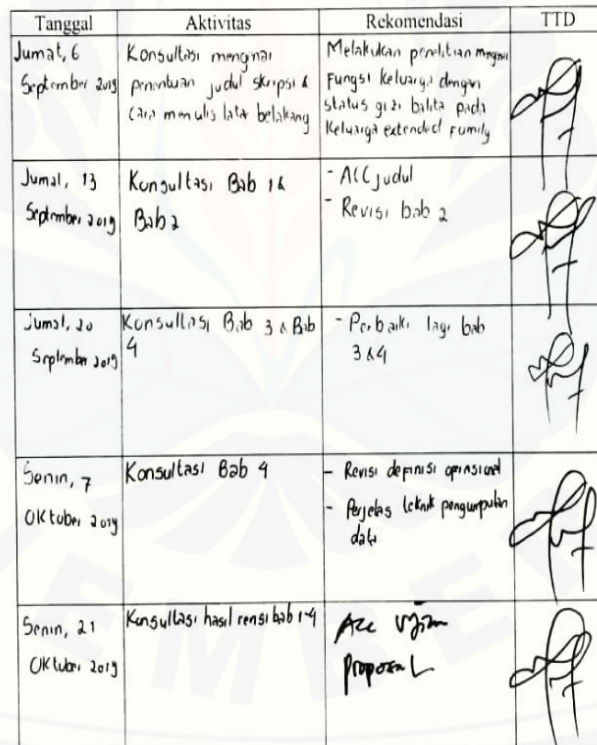 Tanggal Aktivitas Rekomendasi TTD
Jumat, 6
September 2019
Konsultasi mengnai
penentuan judul skripsi &
Cara menulis latar belakang
Melakukan penelitian mengnai
Fungsi Keluarga dengan
status gizi balita pada
Keluarga extended Family
Jumat, 13
September 2019
Konsultasi Bab 1 &
Bab 2
- ACC judul
- Revisi bab 2
Jumat, 20
September 2019
Konsultasi Bab 3 & Bab
4
- Perbaiki lagi bab
3 & 4
Senin, 7
Oktober 2019
Konsultasi Bab 4
- Revisi definisi oprasional
- Perjelas teknik pengumpulan
data
Senin, 21
Oktober 2019
Konsultasi hasil revisi bab 1-4
Acc Ujian
Proposal
EMBE